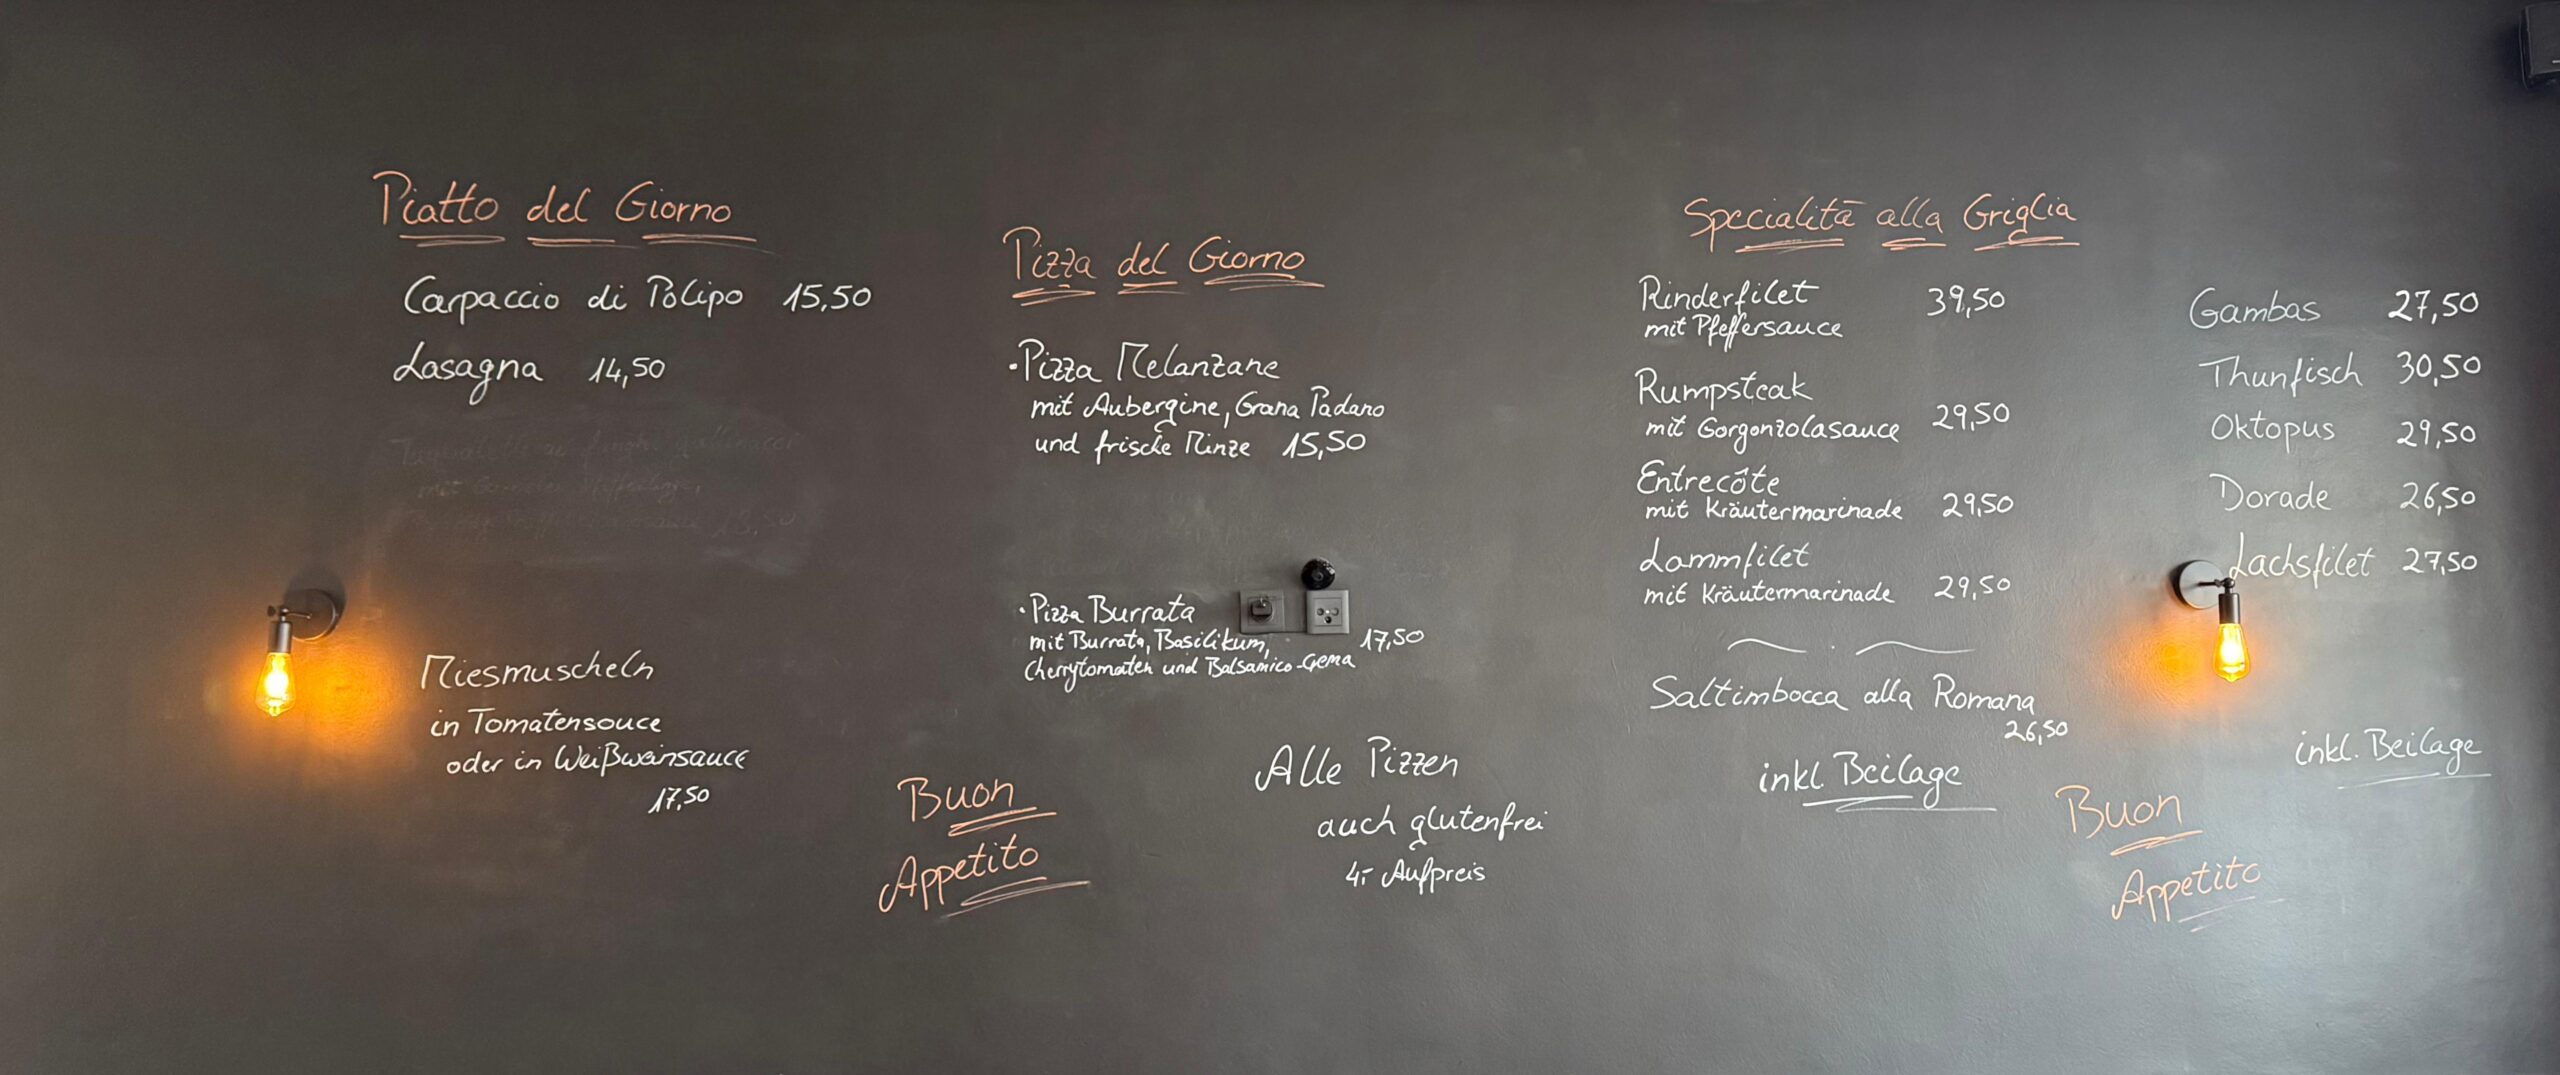 Piatto del Giorno
Carpaccio di Polipo 15,50
Lasagna 14,50
Miesmuscheln
in Tomatensouce
oder in Weißweinsauce
17,50
Buon
Appetito
Pizza del Giorno
·Pizza Melanzane
mit Aubergine, Grana Padano
und frische Minze 15,50
·Pizza Burrata
mit Burrata, Basilikum, 17,50
Cherrytomaten und Balsamico-Crema
Alle Pizzen
auch glutenfrei
4,- Aufpreis
Specialità alla Griglia
Rinderfilet 39,50
mit Pfeffersauce
Rumpsteak
mit Gorgonzolasauce 29,50
Entrecôte
mit Kräutermarinade 29,50
Lammfilet
mit Kräutermarinade 29,50
Saltimbocca alla Romana
26,50
inkl. Beilage
Gambas 27,50
Thunfisch 30,50
Oktopus 29,50
Dorade 26,50
Lachsfilet 27,50
inkl. Beilage
Buon
Appetito